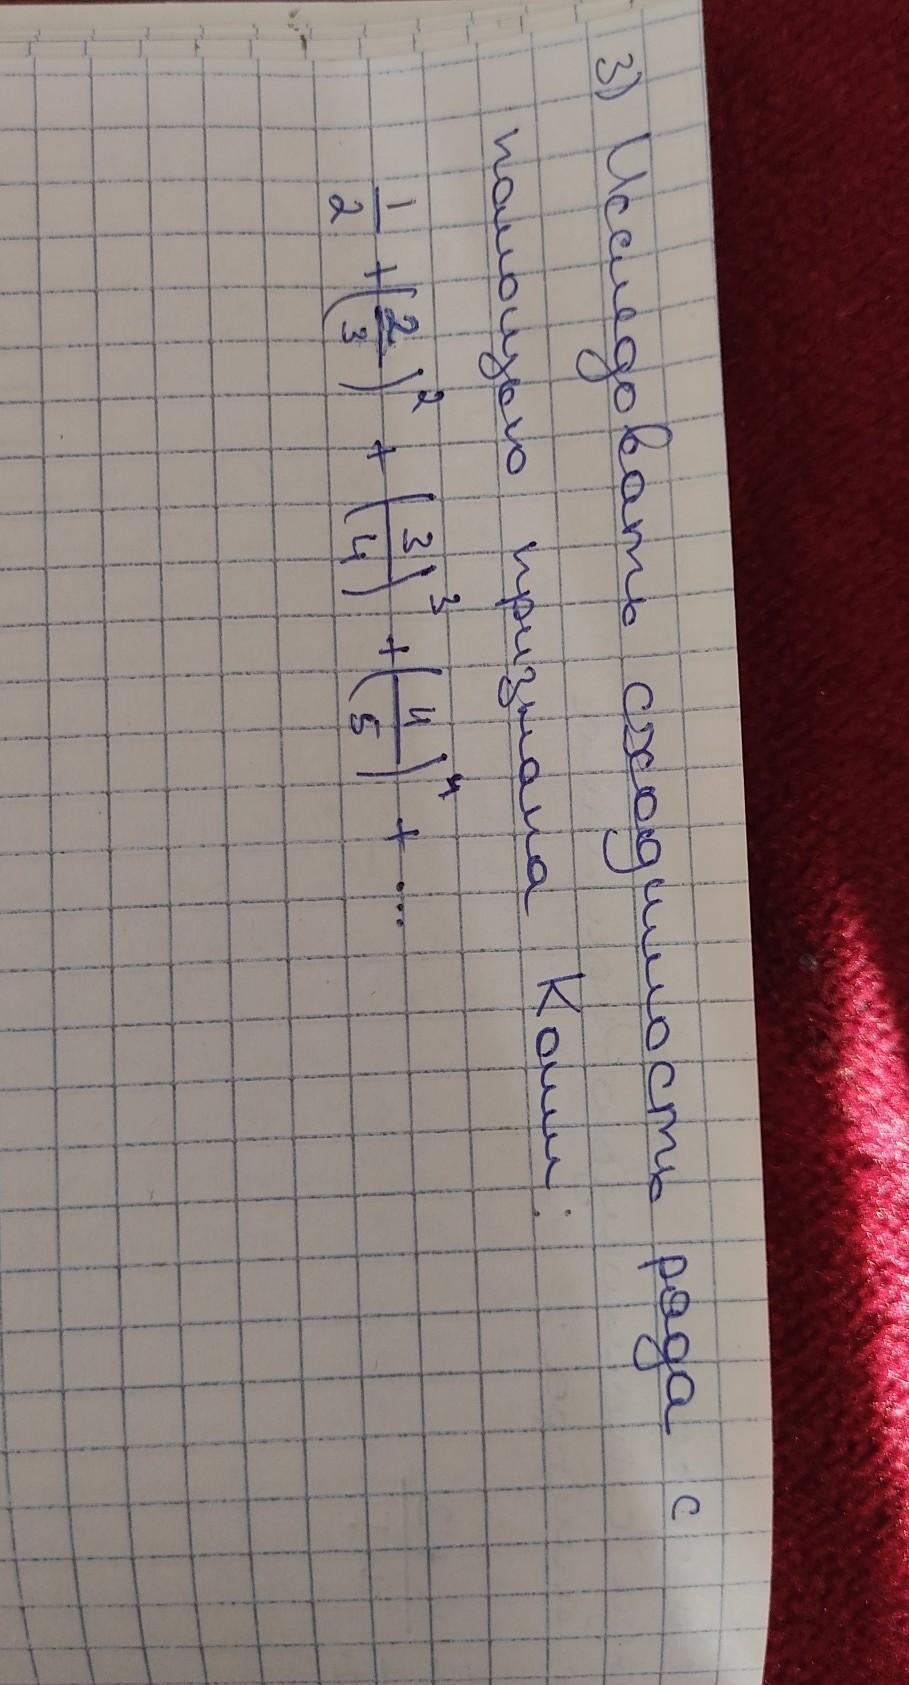 3) Исследовать сходимость ряда с
помощью признака Коши:
1/2 + (2/3)² + (3/4)³ + (4/5)⁴ + ...